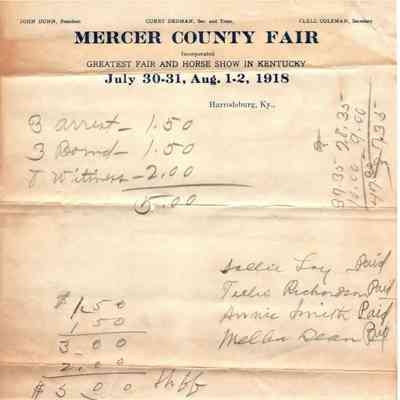 JOHN DUNN, President CURRY DEDMAN, Sec. and Treas. CLELL COLEMAN, Secretary
MERCER COUNTY FAIR
Incorporated
GREATEST FAIR AND HORSE SHOW IN KENTUCKY
July 30-31, Aug. 1-2, 1918
Harrodsburg, Ky.,
3 arrest - 1.50
3 Bond - 1.50
8 Witness - 2.00
5.00
28.35
9.00
37.35
10.00
47.35
Sallie Paid
Tillie Richardson Paid
Annie Smith Paid
Mellie Dean Pd
$1.50
1 50
3 00
2.00
$5 00 Shff